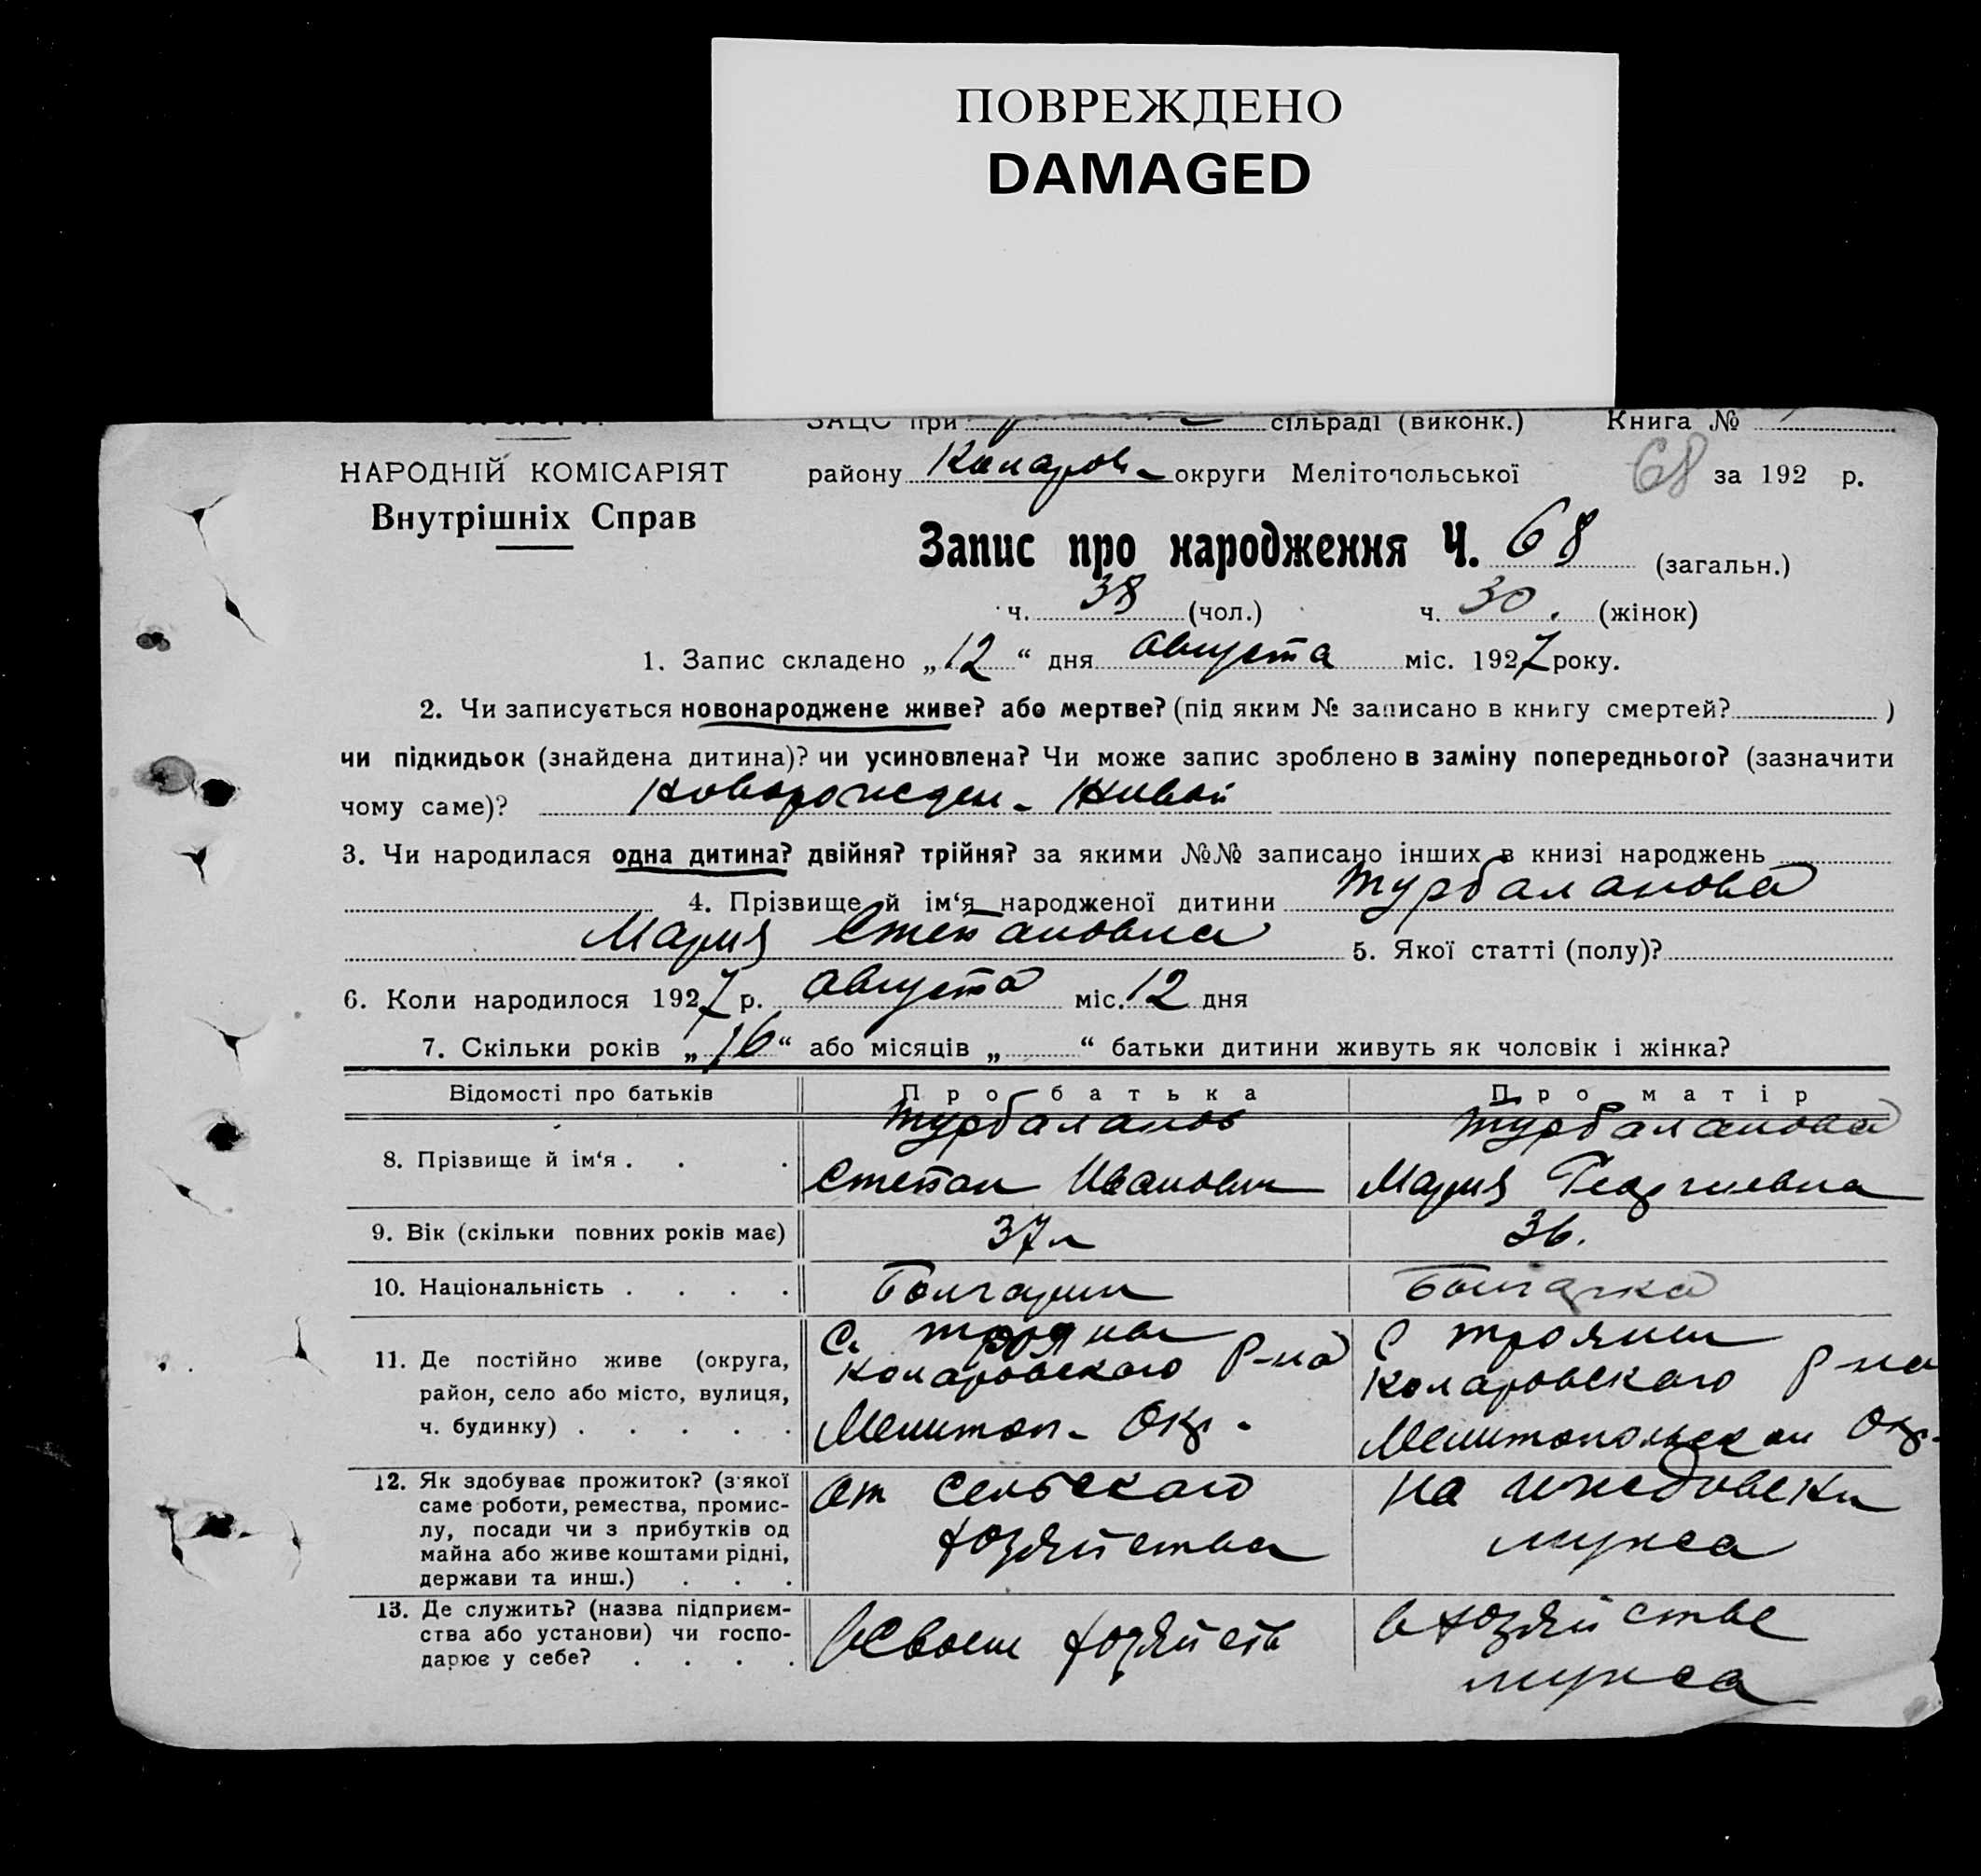 ПОВРЕЖДЕНО
DAMAGED
ЗАЦС при сільраді (виконк.) Книга №
НАРОДНІЙ КОМІСАРІЯТ
району Коларов- округи Мелітопольської 68 за 192 р.
Внутрішніх Справ
Запис про народження Ч. 68 (загальн.)
ч. 38 (чол.) ч. 30. (жінок)
1. Запис складено „12“ дня Августа міс. 1927 року.
2. Чи записується новонароджене живе? або мертве? (під яким № записано в книгу смертей? )
чи підкидьок (знайдена дитина)? чи усиновлена? Чи може запис зроблено в заміну попереднього? (зазначити
чому саме)? Новорожден- Живой
3. Чи народилася одна дитина? двійня? трійня? за якими №№ записано інших в книзі народжень
4. Прізвище й ім‘я народженої дитини Турбаланова
Мария Степановна 5. Якої статті (полу)?
6. Коли народилося 1927 р. Августа міс. 12 дня
7. Скільки років „16“ або місяців „ “ батьки дитини живуть як чоловік і жінка?
Відомості про батьків Про батька Про матір
8. Прізвище й ім‘я . . . Турбаланов Турбаланова
Степан Иванович Мария Георгиевна
9. Вік (скільки повних років має) 37 л 36.
10. Національність . . . . Болгарин Болгарка
11. Де постійно живе (округа, район, село або місто, вулиця, ч. будинку) . . . . .
С. Трояны
Коларовского р-на
Мелитоп- Окр.
С Трояны
Коларовского р-на
Мелитопольской Окр.
12. Як здобуває прожиток? (з якої саме роботи, ремества, промислу, посади чи з прибутків од майна або живе коштами рідні, держави та инш.) . . .
от сельского
хозяйства
на иждевеки
мужа
13. Де служить? (назва підприємства або установи) чи господарює у себе? . . . .
В своем хозяйств
в хозяйстве
мужа